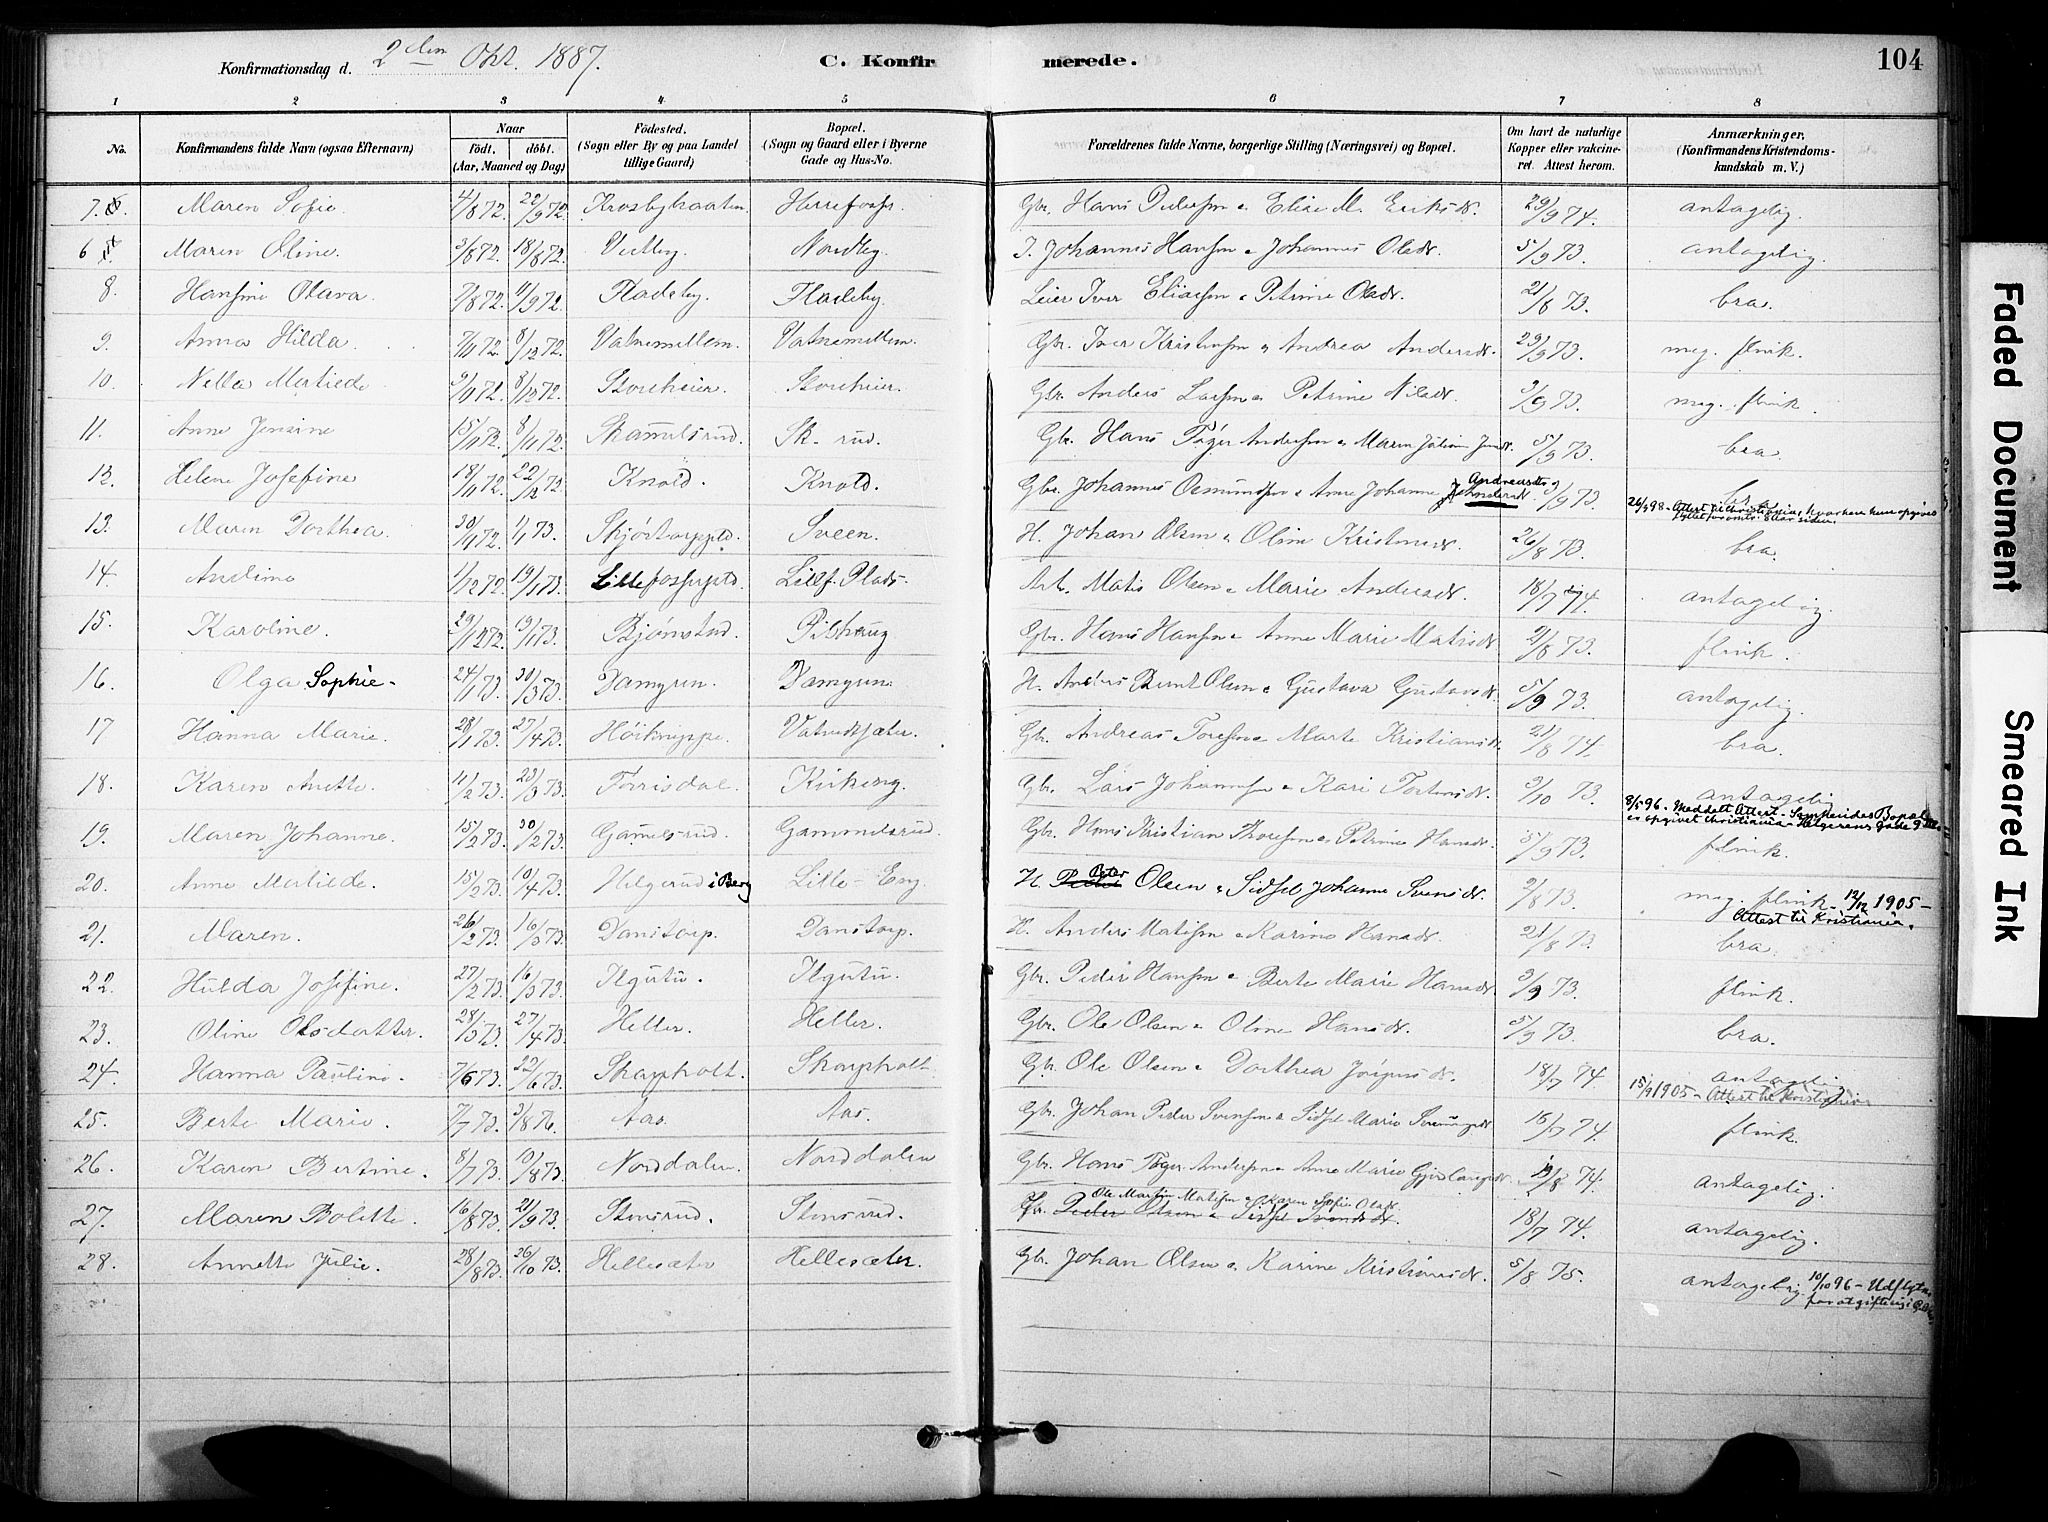 Konfirmationsdag d. 2den Okt. 1887. C. Konfirmerede. 104
1 2 3 4 5 6 7 8
No. Konfirmandens fulde Navn (ogsaa Efternavn) Naar Födt. döbt. (Aar, Maaned og Dag) Födested. (Sogn eller By og paa Landet tillige Gaard) Bopæl. (Sogn og Gaard eller i Byerne Gade og Hus-No. Forældrenes fulde Navne, borgerlige Stilling (Næringsvei) og Bopæl. Om havt de naturlige Kopper eller vakcineret. Attest herom. Anmærkninger, (Konfirmandens Kristendomskundskab m. V.)
7. Maren Sofie. 4/8 72. 22/9 72. Herrefoss. Gbr. Hans Pedersen & Elise M. Eriksdt. 29/9 74. antagelig.
6 Maren Oline. 3/8 72. 18/8 72. Vestby. Nordby. I. Johannes Hansen & Johannes Olsdt. 5/9 73. antagelig.
8. Hansine Olava. 7/8 72. 11/9 72. Fladeby. Fladeby. Leier Iver Eliassen & Petrine Olsdt. 21/8 73. bra.
9. Anna Hilda. 7/11 72. 8/12 72. Vatnemellem. Vatnemellem. Gbr. Iver Kristensen & Andrea Andersdt. 29/9 73. meg. flink.
10. Nella Matilede 9/11 72. 8/12 72. Storeheier. Storeheier. Gbr. Anders Larsen & Petrine Nilsdt. 3/9 73. meg. flink.
11. Anne Jensine 15/11 72. 8/11 72. Skammelsrud. Sk-rud. Gbr. Hans Tøger Andersen & Maren Juliane Jensdt. 5/9 73. bra.
12. Helene Josefine 18/11 72. 22/12 72. Knold. Knold. Gbr. Johannes Osmundsen & Anne Johanne Andersdt. Andreasdt. 5/9 73. bra
26/4 98 - Attest til Christiania,
13. Maren Dorthea. 30/11 72. 1/1 73. Skjøstorppld. Sveen. H. Johan Olsen & Oline Kristensdt. 26/8 73. bra.
14. Andine 1/12 72. 19/1 73. Lillefosspld. Lillf. Plads. Arb. Matis Olsen & Marie Andersdt. 18/7 74. antagelig.
15. Karoline. 29/12 72. 19/1 73. Bjørnstad. Pilhaug Gbr. Hans Hansen & Anne Marie Matisdt. 9/8 73. flink.
16. Olga Sophie. 24/1 73. 30/3 73. Damgren. Damgren. H. Anders Bernt Olsen & Gustava Gustavsdt. 5/9 73. antagelig.
17 Hanna Marie. 28/1 73. 27/4 73. Høiknippe. Vatvedtsæter. Gbr. Andreas Toresen & Marte Kristiansdt. 21/8 74. bra.
18. Karen Anette. 11/2 73. 23/3 73. Torrisdal. Kirkeng. Gbr. Lars Johannesen & Kari Torstensdt. 3/10 73. antagelig.
8/5 96. Meddelt Attest - Samtendes Bopæl er opgivet Christiania - Helgesens Gade 9
19. Maren Johanne. 15/2 73. 30/2 73. Gamelsrud. Gammelsrud. Gbr. Hans Kristian Toresen & Petrine Hansdt. 5/9 73. flink.
20. Anne Matilde. 15/2 73. 10/4 73. Helgerud i Berg Lille-Eng H. Peder Peter Olsen & Sidsel Johanne Svensdt. 9/8 73. meg. flink 12/12 1905 -
Attest til Kristiania.
21. Maren. 26/2 73. 16/3 73. Danstorp. Danstorp. H. Anders Matisen & Karine Hansdt. 21/8 73. bra.
22. Hulda Josefine. 27/2 73. 16/3 73. Ilgutu. Ilgutu. Gbr. Peder Hansen & Berte Marie Hansdt. 3/9 73. flink.
23. Oline Olsdatter 28/3 73. 27/4 73. Heller. Heller. Gbr. Ole Olsen & Oline Hansdt. 5/9 73. bra.
24. Hanna Pauline. 7/6 73. 22/6 73. Skapholt. Skapholt. Gbr. Ole Olsen & Dorthea Jørgensdt. 18/7 74 antagelig
15/9 1905 - Attest til Kristiania
25. Berte Marie. 7/7 73. 3/8 76. Aas. Aas. Gbr. Johan Peder Svensen & Sidsel Marie 16/7 74. flink.
26. Karen Bertine. 8/7 73. 10/8 73. Norddalen. Norddalen Gbr. Hans Tøger Andersen & Anne Marie 19/8 74. antagelig.
Ole Martin Matisen & Karen Sofie Olsdt.
27. Maren Bolette. 16/8 73. 21/9 73. Stensrud. Stensrud. Gbr. Peder Olsen & Sidsel Svendsdt. 18/7 74. antagelig.
28. Annette Julie. 28/8 73. 26/10 73. Hellesæter Hellesæter. Gbr. Johan Olsen & Karine Kristiansdt. 5/8 75. antagelig. 10/10 96 - Udflyttn.
for at giftes i
Faded Document
Smeared Ink